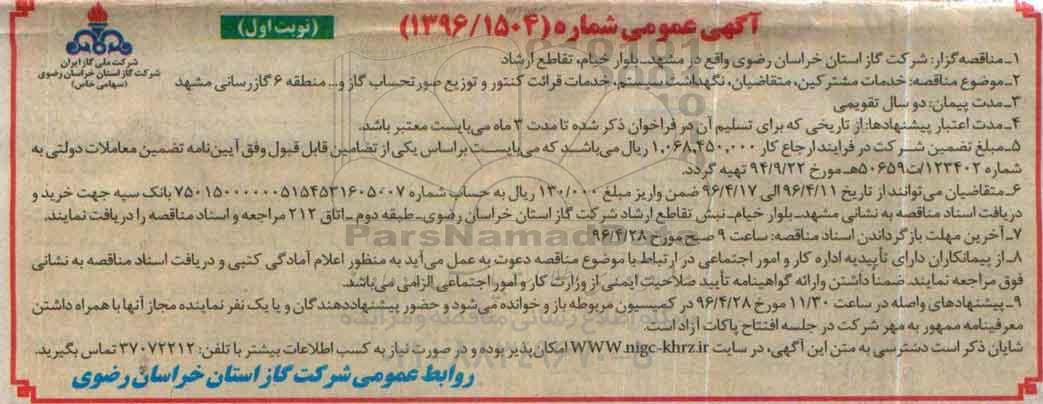 آگهی عمومی شماره (۱۳۹۶/۱۵۰۴)
(نوبت اول)
شرکت ملی گاز ایران
شرکت گاز استان خراسان رضوی
(سهامی خاص)
۱ـ مناقصه گزار: شرکت گاز استان خراسان رضوی واقع در مشهدـ بلوار خیام، تقاطع ارشاد
۲ـ موضوع مناقصه: خدمات مشترکین، متقاضیان، نگهداشت سیستم، خدمات قرائت کنتور و توزیع صورتحساب گاز و... منطقه ۶ گازرسانی مشهد
۳ـ مدت پیمان: دو سال تقویمی
۴ـ مدت اعتبار پیشنهادها: از تاریخی که برای تسلیم آن در فراخوان ذکر شده تا مدت ۳ ماه می‌بایست معتبر باشد.
۵ـ مبلغ تضمین شرکت در فرایند ارجاع کار ۱،۰۶۸،۴۵۰،۰۰۰ ریال می‌باشد که می‌بایست براساس یکی از تضامین قابل قبول وفق آیین‌نامه تضمین معاملات دولتی به
شماره ۱۲۳۴۰۲/ت۵۰۶۵۹هـ مورخ ۹۴/۹/۲۲ تهیه گردد.
۶ـ متقاضیان می‌توانند از تاریخ ۹۶/۴/۱۱ الی ۹۶/۴/۱۷ ضمن واریز مبلغ ۱۳۰/۰۰۰ ریال به حساب شماره بانک سپه جهت خرید و
دریافت اسناد مناقصه به نشانی مشهدـ بلوار خیام ـ نبش تقاطع ارشاد شرکت گاز استان خراسان رضوی ـ طبقه دوم ـ اتاق ۲۱۲ مراجعه و اسناد مناقصه را دریافت نمایند.
۷ـ آخرین مهلت بازگرداندن اسناد مناقصه: ساعت ۹ صبح مورخ ۹۶/۴/۲۸
ParsNamaddata
۸ـ از پیمانکاران دارای تأییدیه اداره کار و امور اجتماعی در ارتباط با موضوع مناقصه دعوت به عمل می‌آید به منظور اعلام آمادگی کتبی و دریافت اسناد مناقصه به نشانی
فوق مراجعه نمایند. ضمناً داشتن و ارائه گواهینامه تأیید صلاحیت ایمنی از وزارت کار و امور اجتماعی الزامی می‌باشد.
۹ـ پیشنهادهای واصله در ساعت ۱۱/۳۰ مورخ ۹۶/۴/۲۸ در کمیسیون مربوطه باز و خوانده می‌شود و حضور پیشنهاددهندگان و یا یک نفر نماینده مجاز آنها با همراه داشتن
معرفینامه ممهور به مهر شرکت در جلسه افتتاح پاکات آزاد است.
شایان ذکر است دسترسی به متن این آگهی، در سایت WWW.nigc-khrz.ir امکان‌پذیر بوده و در صورت نیاز به کسب اطلاعات بیشتر با تلفن: ۳۷۰۷۲۲۱۲ تماس بگیرید.
روابط عمومی شرکت گاز استان خراسان رضوی